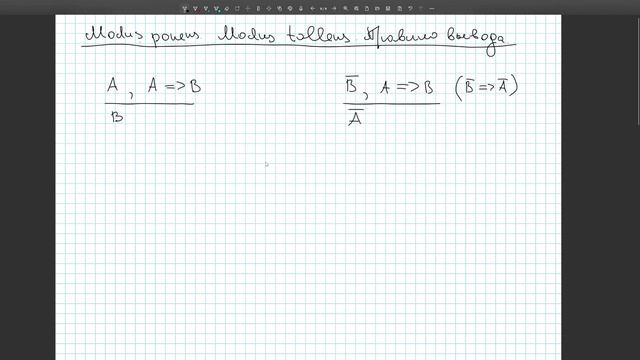 Modus ponens Modus tollens Правило вывода
A, A => B
B
B̅, A => B (B̅ => A̅)
A̅